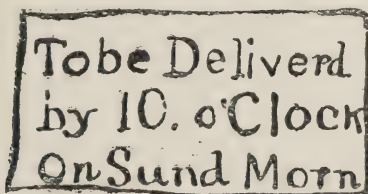 To be Deliverd
by 10. o'Clock
on Sund Morn